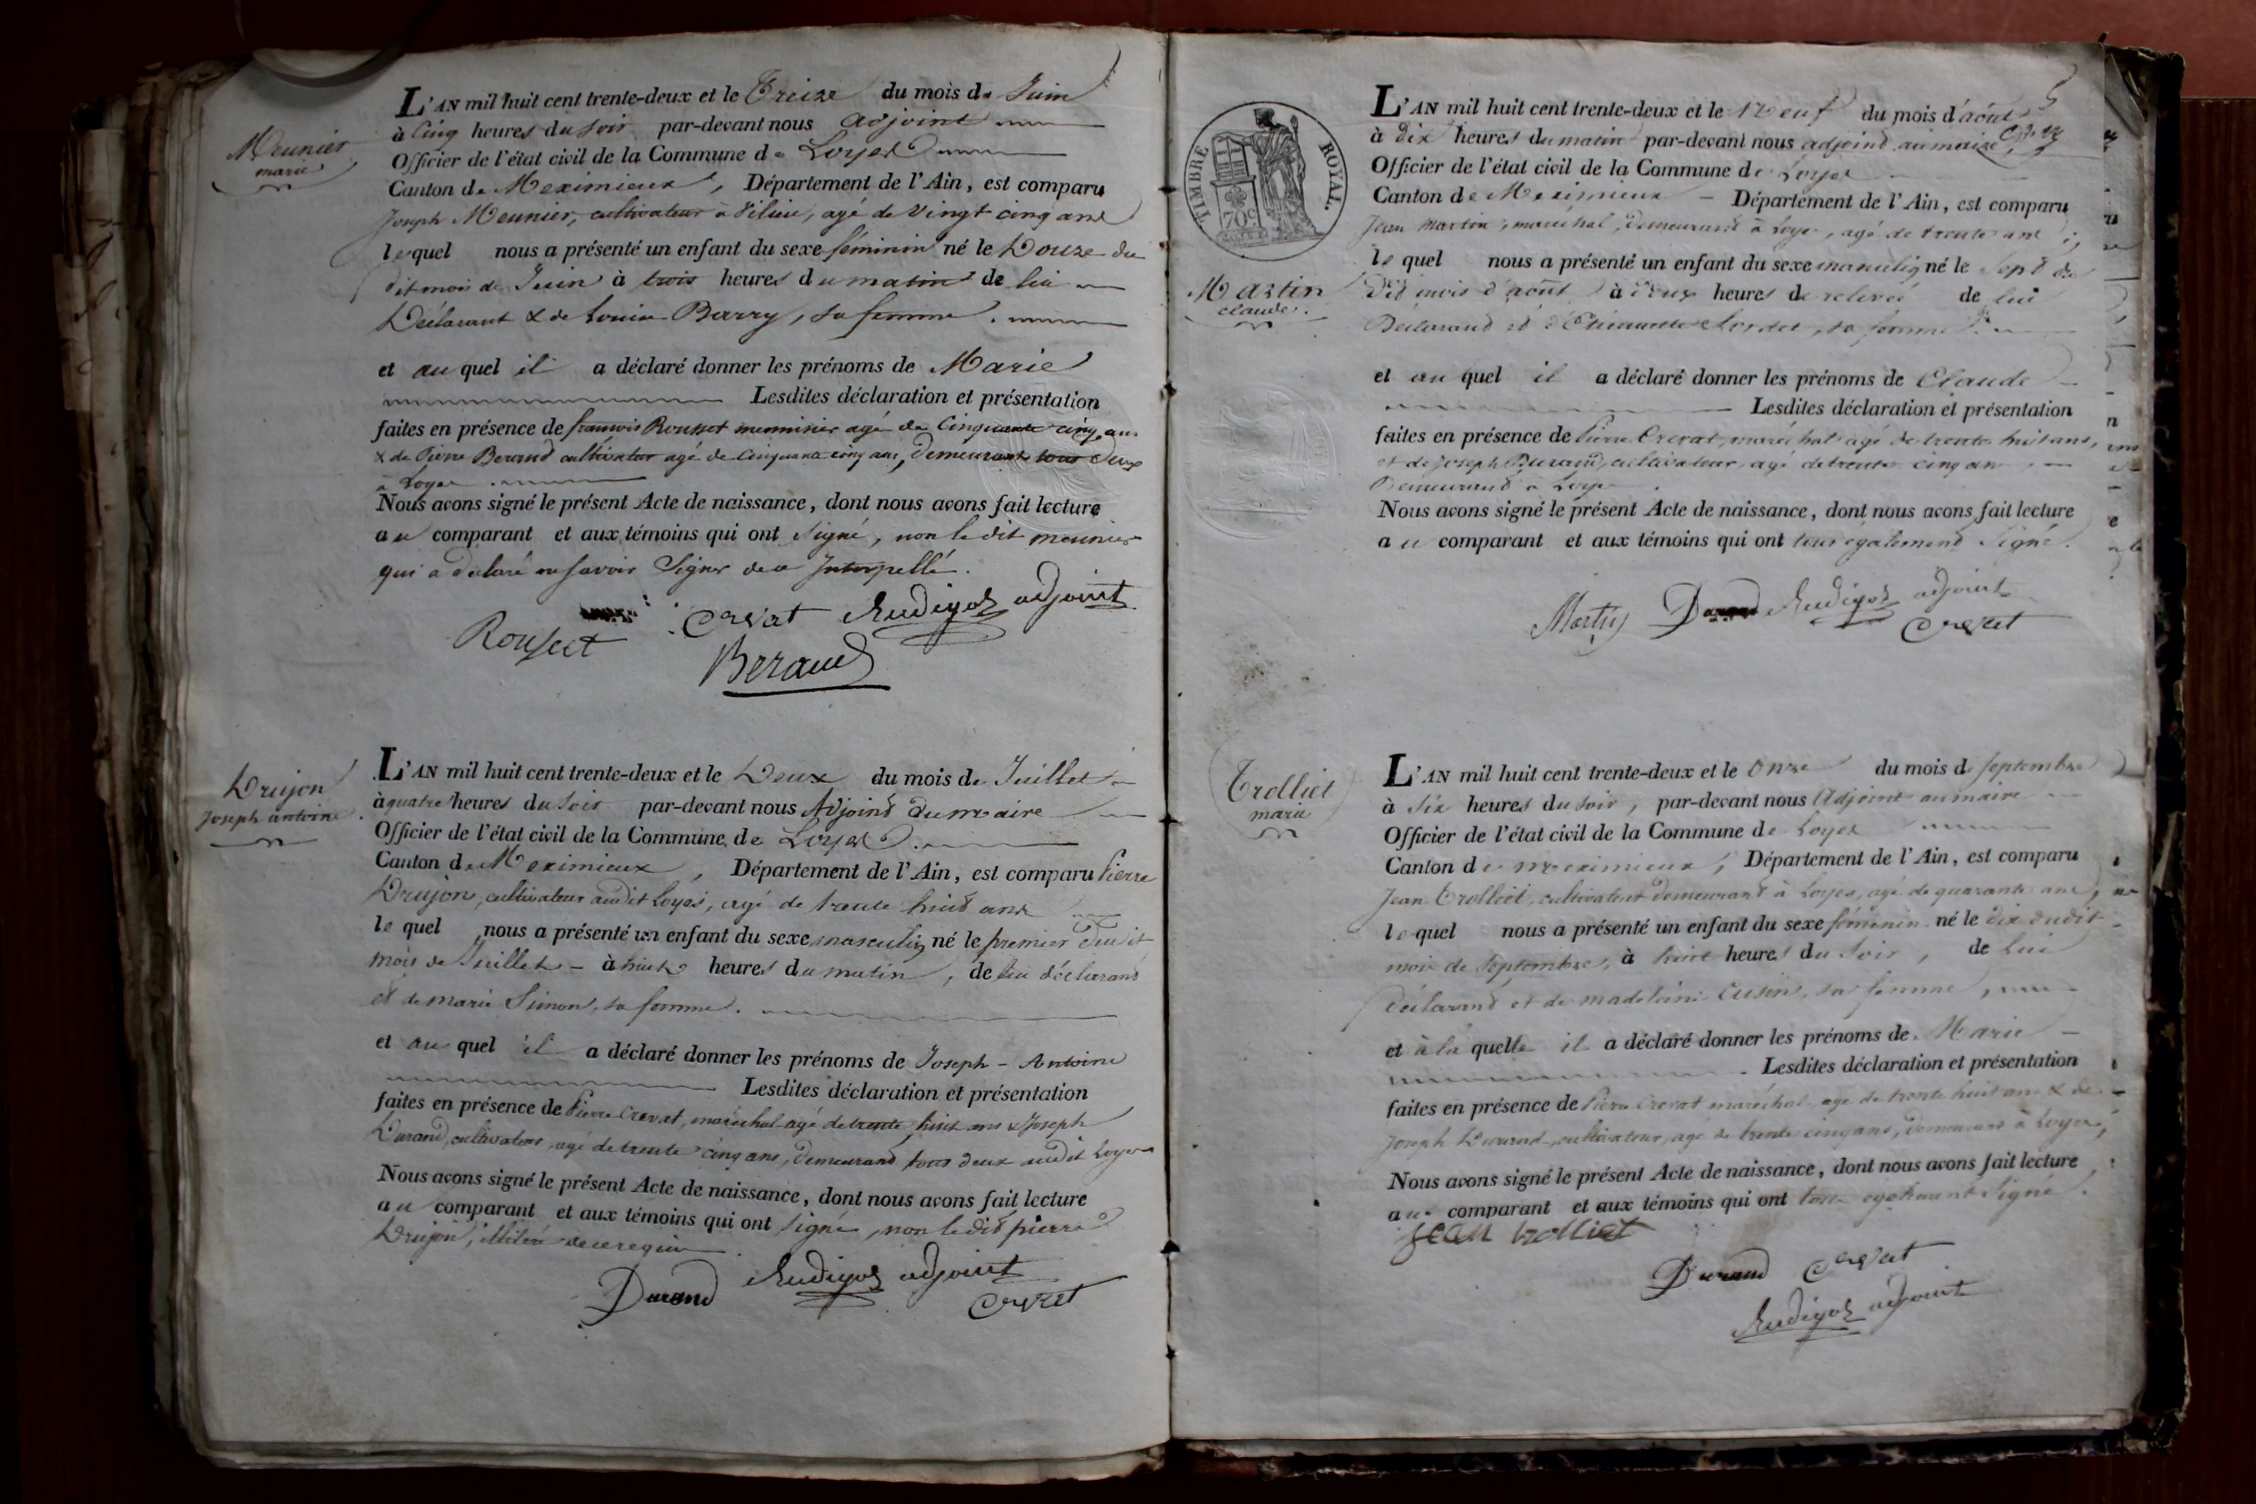 Meunier
marie
L'AN mil huit cent trente-deux et le Treize du mois de Juin
à Cinq heures du soir par-devant nous adjoint
Officier de l'état civil de la Commune de Loyes
Canton de Meximieux, Département de l'Ain, est comparu
Joseph Meunier, cultivateur à Vilieu, agé de Vingt cinq ans
lequel nous a présenté un enfant du sexe féminin né le Douze du
dit mois de Juin à trois heures du matin de lui
Déclarant & de Louise Barry, sa femme.
et au quel il a déclaré donner les prénoms de Marie
Lesdites déclaration et présentation
faites en présence de francois Rousset menuisier agé de Cinquante cinq ans
& de Pierre Beraud cultivateur agé de Cinquante cinq ans, demeurant tous deux
à Loyes.
Nous avons signé le présent Acte de naissance, dont nous avons fait lecture
au comparant et aux témoins qui ont signé, non le dit meunier
qui a déclaré ne savoir Signer de ce Interpellé.
Rousset Crevat Rudigoz adjoint
Beraud
Drujon
Joseph antoine.
L'AN mil huit cent trente-deux et le Deux du mois de Juillet
à quatre heures du soir par-devant nous Adjoint du maire
Officier de l'état civil de la Commune de Loyes.
Canton de Meximieux, Département de l'Ain, est comparu Pierre
Drujon, cultivateur audit Loyes, agé de trente huit ans
le quel nous a présenté un enfant du sexe masculin né le premier dudit
mois de Juillet - à huit heures du matin, de lui déclarant
et de marie Simon, sa femme.
et au quel il a déclaré donner les prénoms de Joseph - Antoine
Lesdites déclaration et présentation
faites en présence de Pierre Crevat, maréchal agé de trente huit ans & Joseph
Durand, cultivateur, agé de trente cinq ans, demeurand tous deux audit Loyes
Nous avons signé le présent Acte de naissance, dont nous avons fait lecture
au comparant et aux témoins qui ont signé, non le dit pierre
Drujon, illiteré de ce requis.
Durand Rudigoz adjoint
Crevat
TIMBRE ROYAL.
70c
Martin
claude.
L'AN mil huit cent trente-deux et le Neuf du mois d'août
à dix heures du matin par-devant nous adjoind au maire
Officier de l'état civil de la Commune de Loyes
Canton de Meximieux - Département de l'Ain, est comparu
Jean Martin, maréchal, demeurand à Loyes, agé de trente ans
le quel nous a présenté un enfant du sexe masculin né le Sept du
Dit mois d'août à deux heures de relevée de lui
Déclarand et d'Etiennette Lordet, sa femme.
et au quel il a déclaré donner les prénoms de Claude
Lesdites déclaration et présentation
faites en présence de Pierre Crevat, maréchal agé de trente huit ans,
et de Joseph Durand, cultivateur, agé de trente cinq ans,
Demeurand à Loyes.
Nous avons signé le présent Acte de naissance, dont nous avons fait lecture
au comparant et aux témoins qui ont tous également Signé.
Martin Durand Rudigoz adjoint
Crevat
Trolliet
marie
L'AN mil huit cent trente-deux et le Onze du mois de Septembre
à Six heures du soir, par-devant nous Adjoint au maire
Officier de l'état civil de la Commune de Loyes
Canton de meximieux, Département de l'Ain, est comparu
Jean Trolliet, cultivateur demeurand à Loyes, agé de quarante ans,
lequel nous a présenté un enfant du sexe féminin né le dix dudit
mois de Septembre, à huit heures du Soir, de lui
déclarand et de madeleine Cusin, sa femme,
et à la quelle il a déclaré donner les prénoms de Marie
Lesdites déclaration et présentation
faites en présence de Pierre Crevat maréchal agé de trente huit ans & de
Joseph Durand, cultivateur, agé de trente cinq ans, demeurand à Loyes,
Nous avons signé le présent Acte de naissance, dont nous avons fait lecture
au comparant et aux témoins qui ont tous également Signé.
Jean trolliet
Durand Crevat
Rudigoz adjoint